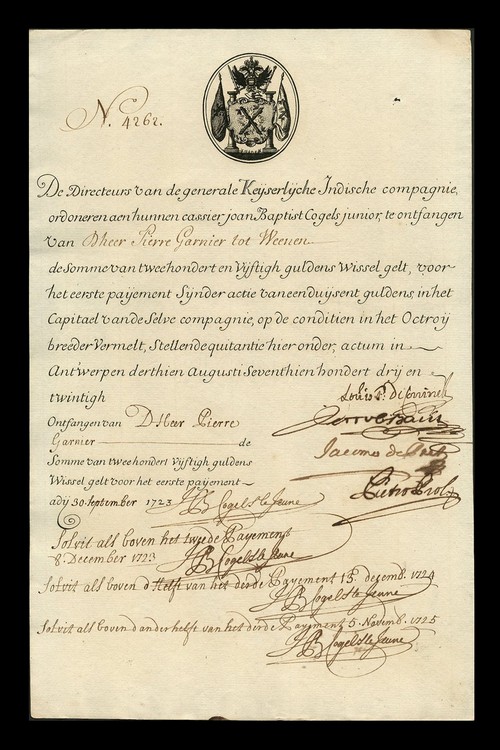 N.º 4262.
De Directeurs van de generale Keyserlyche Indische compagnie,
ordoneren aen hunnen cassier joan Baptist Cogels junior, te ontfangen
van Dheer Pierre Garnier tot Weenen
de Somme van tweehondert en Vyftigh guldens Wissel gelt, voor
het eerste payement Synder actie van een duysent guldens, in het
Capitael van de Selve compagnie, op de conditien in het Octroy
breeder Vermelt, Stellende quitantie hier onder, actum in
Antwerpen derthien Augusti Seventhien hondert drij en
twintigh
Ontfangen van D Heer Pierre
Garnier de
Somme van twee hondert Vyftigh guldens
Wissel gelt voor het eerste payement
adij 30 september 1723 JB Cogels le Jeune
Solvit als boven het tweede Payement
8. December 1723 JB Cogels le Jeune
Solvit als boven d Helft van het derde Payement 15 decemb. 1724
JB Cogels le Jeune
Solvit als boven d'ander helft van het derde Payement 5. Novemb. 1725
JB Cogels le Jeune